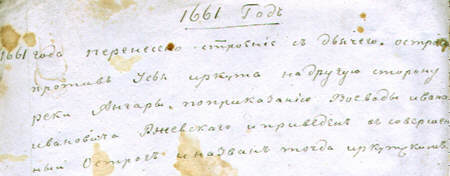 1661 Годъ
1661 года перенесено строение съ дьячего острова
противъ Усья иркута на другую сторону
реки Ангары, поприказанiю Воеводы ивана
ивановича Ржевскаго и приведенъ въ совершен
ный Острогъ и названъ тогда иркутскимъ